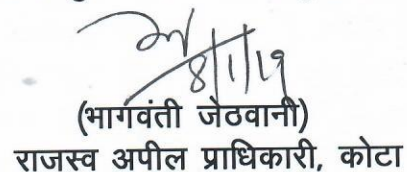 8/1/19
(भागवंती जेठवानी)
राजस्व अपील प्राधिकारी, कोटा